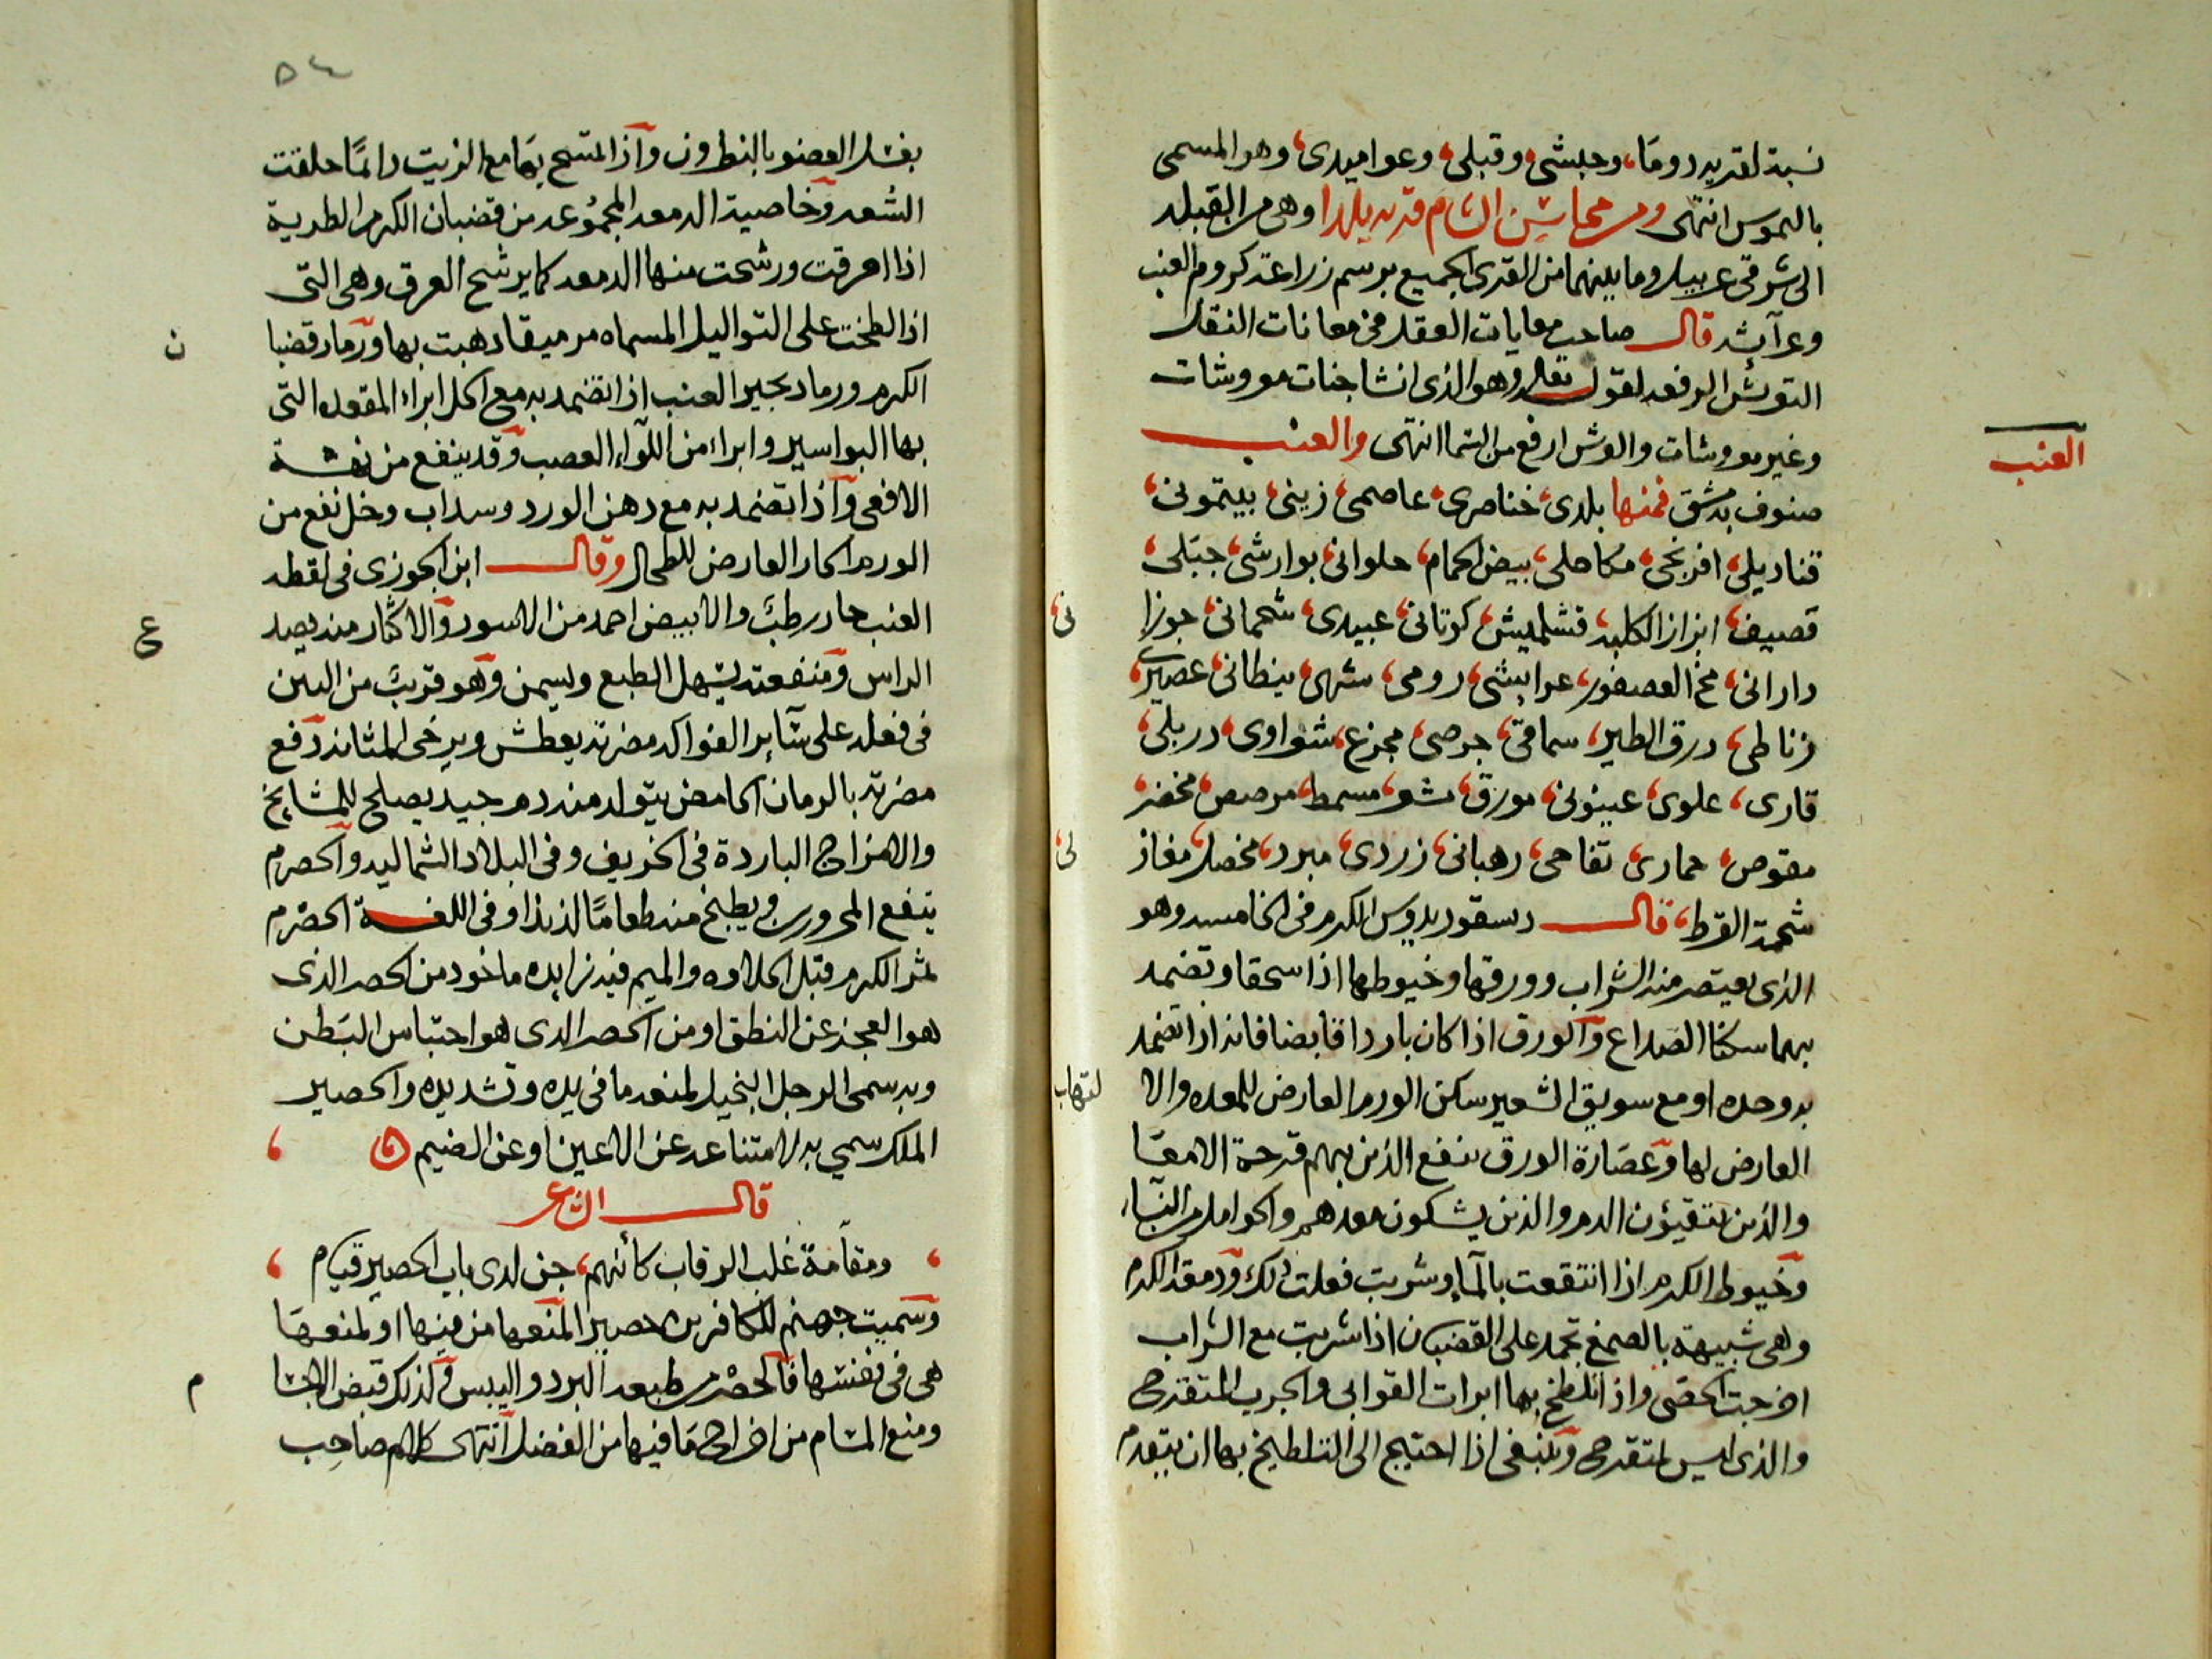 نسبة لقريه دوما، وحبشي، وقبلي، وعواميدي، وهو المسمى
بالموس انتهى ومن محاسن الشام قريه يلدا وهي من القبله
الى شرقي عربيل وما بينهما من القرى الجميع برسم زراعة كروم العنب
وعرآئشه قال صاحب معايات العقل في معانات النقل
التوئش الرفعه لقوله تعالى وهو الذي انشا جنات معروشات
وغير معروشات والعرش ارفع من السما انتهى والعنب
العنب
صنوف بدمشق فمنها بلدى، خناصرى، عاصمى، زينى، بيتمونى،
قناديلى، افرنجى، مكاحلى، بيض الحمام، حلوانى، بوارشى، جبلى،
قصيف، ابزاز الكلبه، قشلميش، كوتانى، عبيدى، شحمانى، جوزا
نى،
دارانى، مخ العصفور، عرايشى، رومى، شهى، ينطانى، عصيرى،
زناطى، درق الطير، سماقى، جرصى، مجزع، شعراوى، دربلى،
قارى، علوى، عينونى، مورق، مشعر، مسمط، مرصص، مخضر،
مقوص، حمارى، تفاحى، رهبانى، زردى، مبرد، مخصل، مغاز
لى،
شحمة القرط، قال ديسقوريدوس الكرم في الخامسه وهو
الذى يعتصر منه الشراب وورقها وخيوطها اذا سحقا وتضمد
بهما سكنا الصداع والورق اذا كان باردا قابضا فانه اذا تضمد
به وحده او مع سويق الشعير سكن الورم العارض للمعده والا
لتهاب
العارض لها وعصارة الورق ينفع الذين بهم قرحة الامعا
والذين يتقيؤن الدم والذين يشكون معدهم والحوامل من النساء
وخيوط الكرم اذا انتقعت بالمآء وشربت فعلت ذلك ودمعة الكرم
وهى شبيهة بالصمغ تجمد على القضبان اذا شربت مع الشراب
اخرجت الحصى واذا تلطخ بها ابرات القوابى والجرب المتقرح
والذى ليس بمتقرح وينبغى اذا احتيج الى التلطيخ بها ان يتقدم
٥٤
بغسل العضو بالنطرون واذا تمسح بها مع الزيت دائما حلقت
الشعر وخاصية الدمعه المجموعه من قضبان الكرم الطرية
اذا احرقت ورشحت منها الدمعه كما يرشح العرق وهى التى
اذا لطخت على التواليل المسماه مرميقا ذهبت بها ورماد قضبا
ن
الكرم ورماد بجير العنب اذا تضمد به مع الخل ابراء المقعده التى
بها البواسير وابراء من اللوآء العصب وقد ينفع من نهشة
الافعى واذا تضمد به مع دهن الورد وسداب وخل نفع من
الورم الحار العارض للطحال وقال ابن الجوزى فى لقطه
العنب حار رطب والابيض احمد من الاسود والاكثار منه يصد
ع
الراس ومنفعته يسهل الطبع ويسمن وهو قريب من التين
فى فعله على سآير الفواكه مضرته يعطش ويرخى المثانه ودفع
مضرته بالرمان الحامض يتولد منه دم جيد يصلح للمشايخ
والامزاج الباردة فى الخريف وفى البلاد الشماليه والحصرم
ينفع المحرورين ويطبخ منه طعاما لذيذا وفى اللغة الحصرم
ثمر الكرم قبل الحلاوه والميم فيه زايده ماخود من الحصر الذى
هو العجز عن النطق او من الحصر الدى هو احتباس البطن
وبه سمى الرجل البخيل لمنعه ما فى يده وتشديده والحصير
الملك سمي به لامتناعه عن الاعين او عن الضيم
قال الشاعر
ومقامة غلب الرقاب كأنهم، جن لدى باب الحصير قيام
وسميت جهنم للكافرين حصيرا لمنعها من فيها او لمنعها
هى فى نفسها فالحصرم طبعه البرد واليبس وكذلك قبض الاحشا
م
ومنع المشام من اخراج ما فيها من الفضل انتهى كلام صاحب